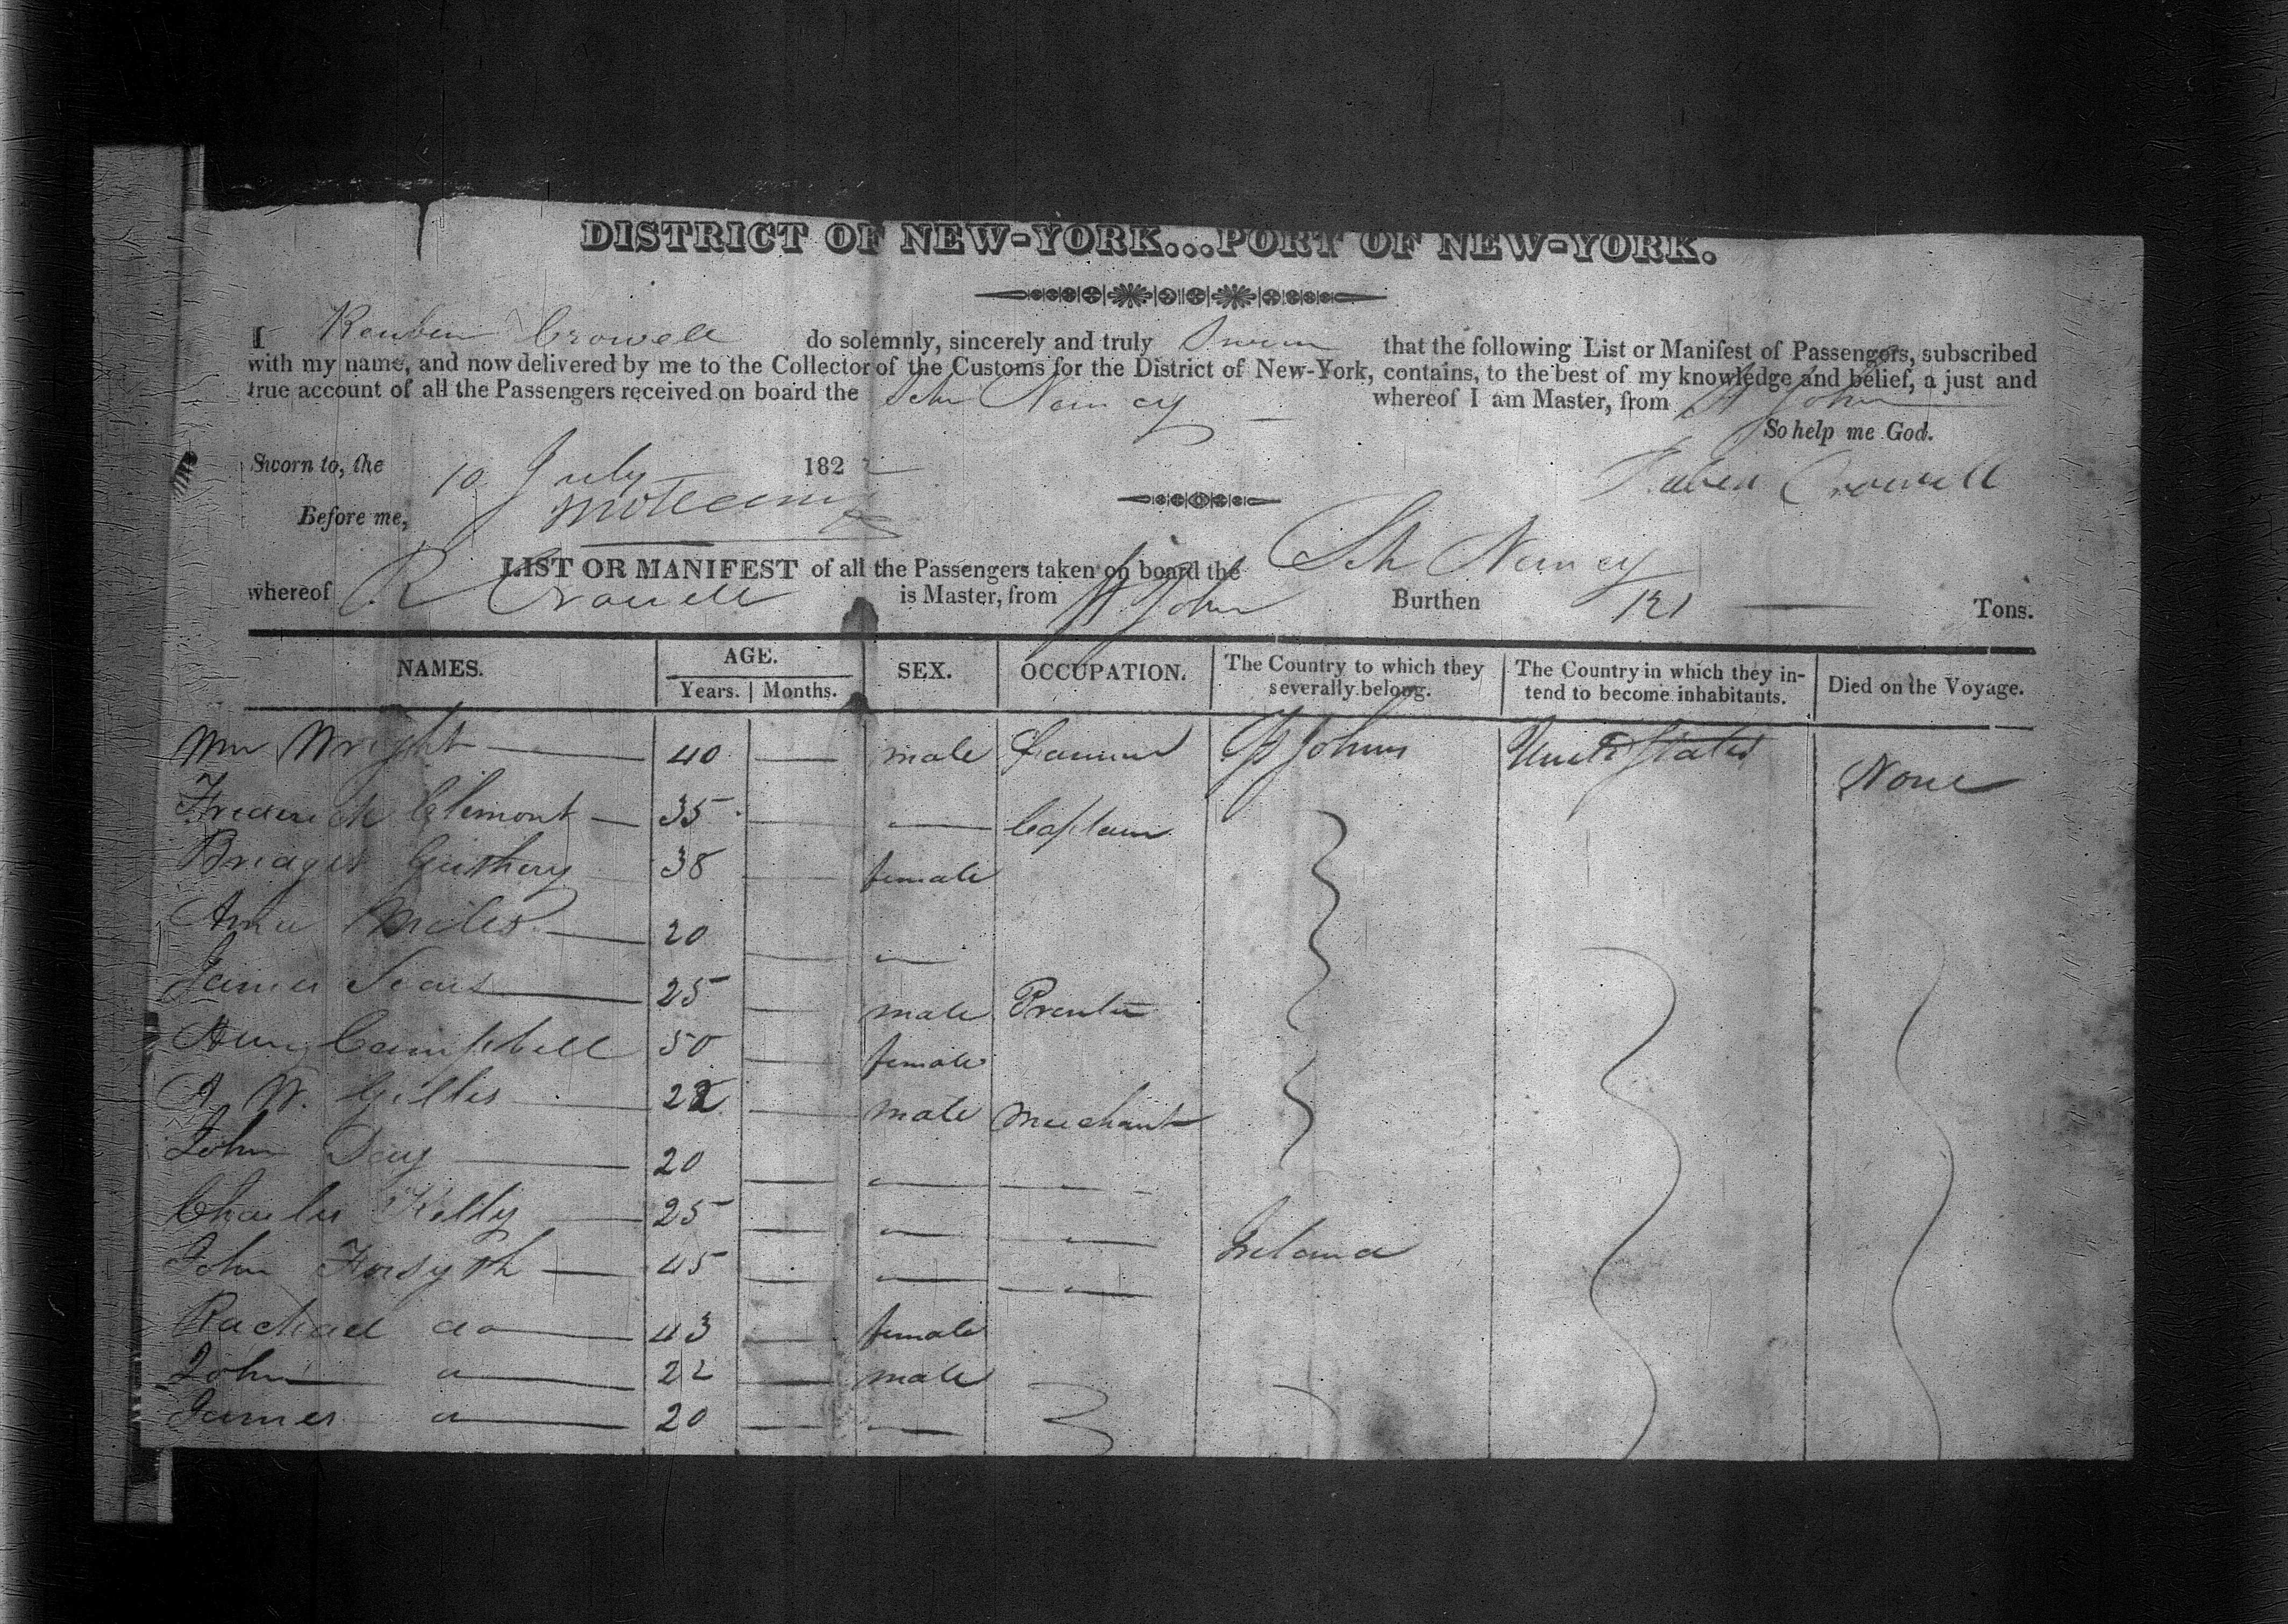 DISTRICT OF NEW-YORK...PORT OF NEW-YORK.
I Reuben Crowell do solemnly, sincerely and truly Swear that the following List or Manifest of Passengers, subscribed
with my name, and now delivered by me to the Collector of the Customs for the District of New-York, contains, to the best of my knowledge and belief, a just and
true account of all the Passengers received on board the Schr Nancy whereof I am Master, from St John
So help me God.
Sworn to, the 10 July 1822
Reuben Crowell
Before me,
LIST OR MANIFEST of all the Passengers taken on board the Sch Nancy
whereof R Crowell is Master, from St John Burthen 121 Tons.
NAMES. AGE. Years. Months. SEX. OCCUPATION. The Country to which they severally belong. The Country in which they intend to become inhabitants. Died on the Voyage.
Wm Wright 40 male Farmer St Johns United States None
Frederick Clemont 35 Captain
Bridget Guthery 38 female
Anne Miles 20
James Sears 25 male
Campbell 50 female
A W. Gillis 22 male Merchant
John Day 20
Charles Kelly 25
John Forsyth 45 Ireland
Rachael do 43 female
John 22 male
James 20